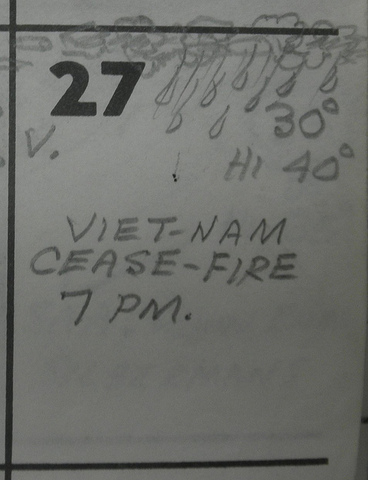 27
30°
V.
HI 40°
VIET-NAM
CEASE-FIRE
7 PM.